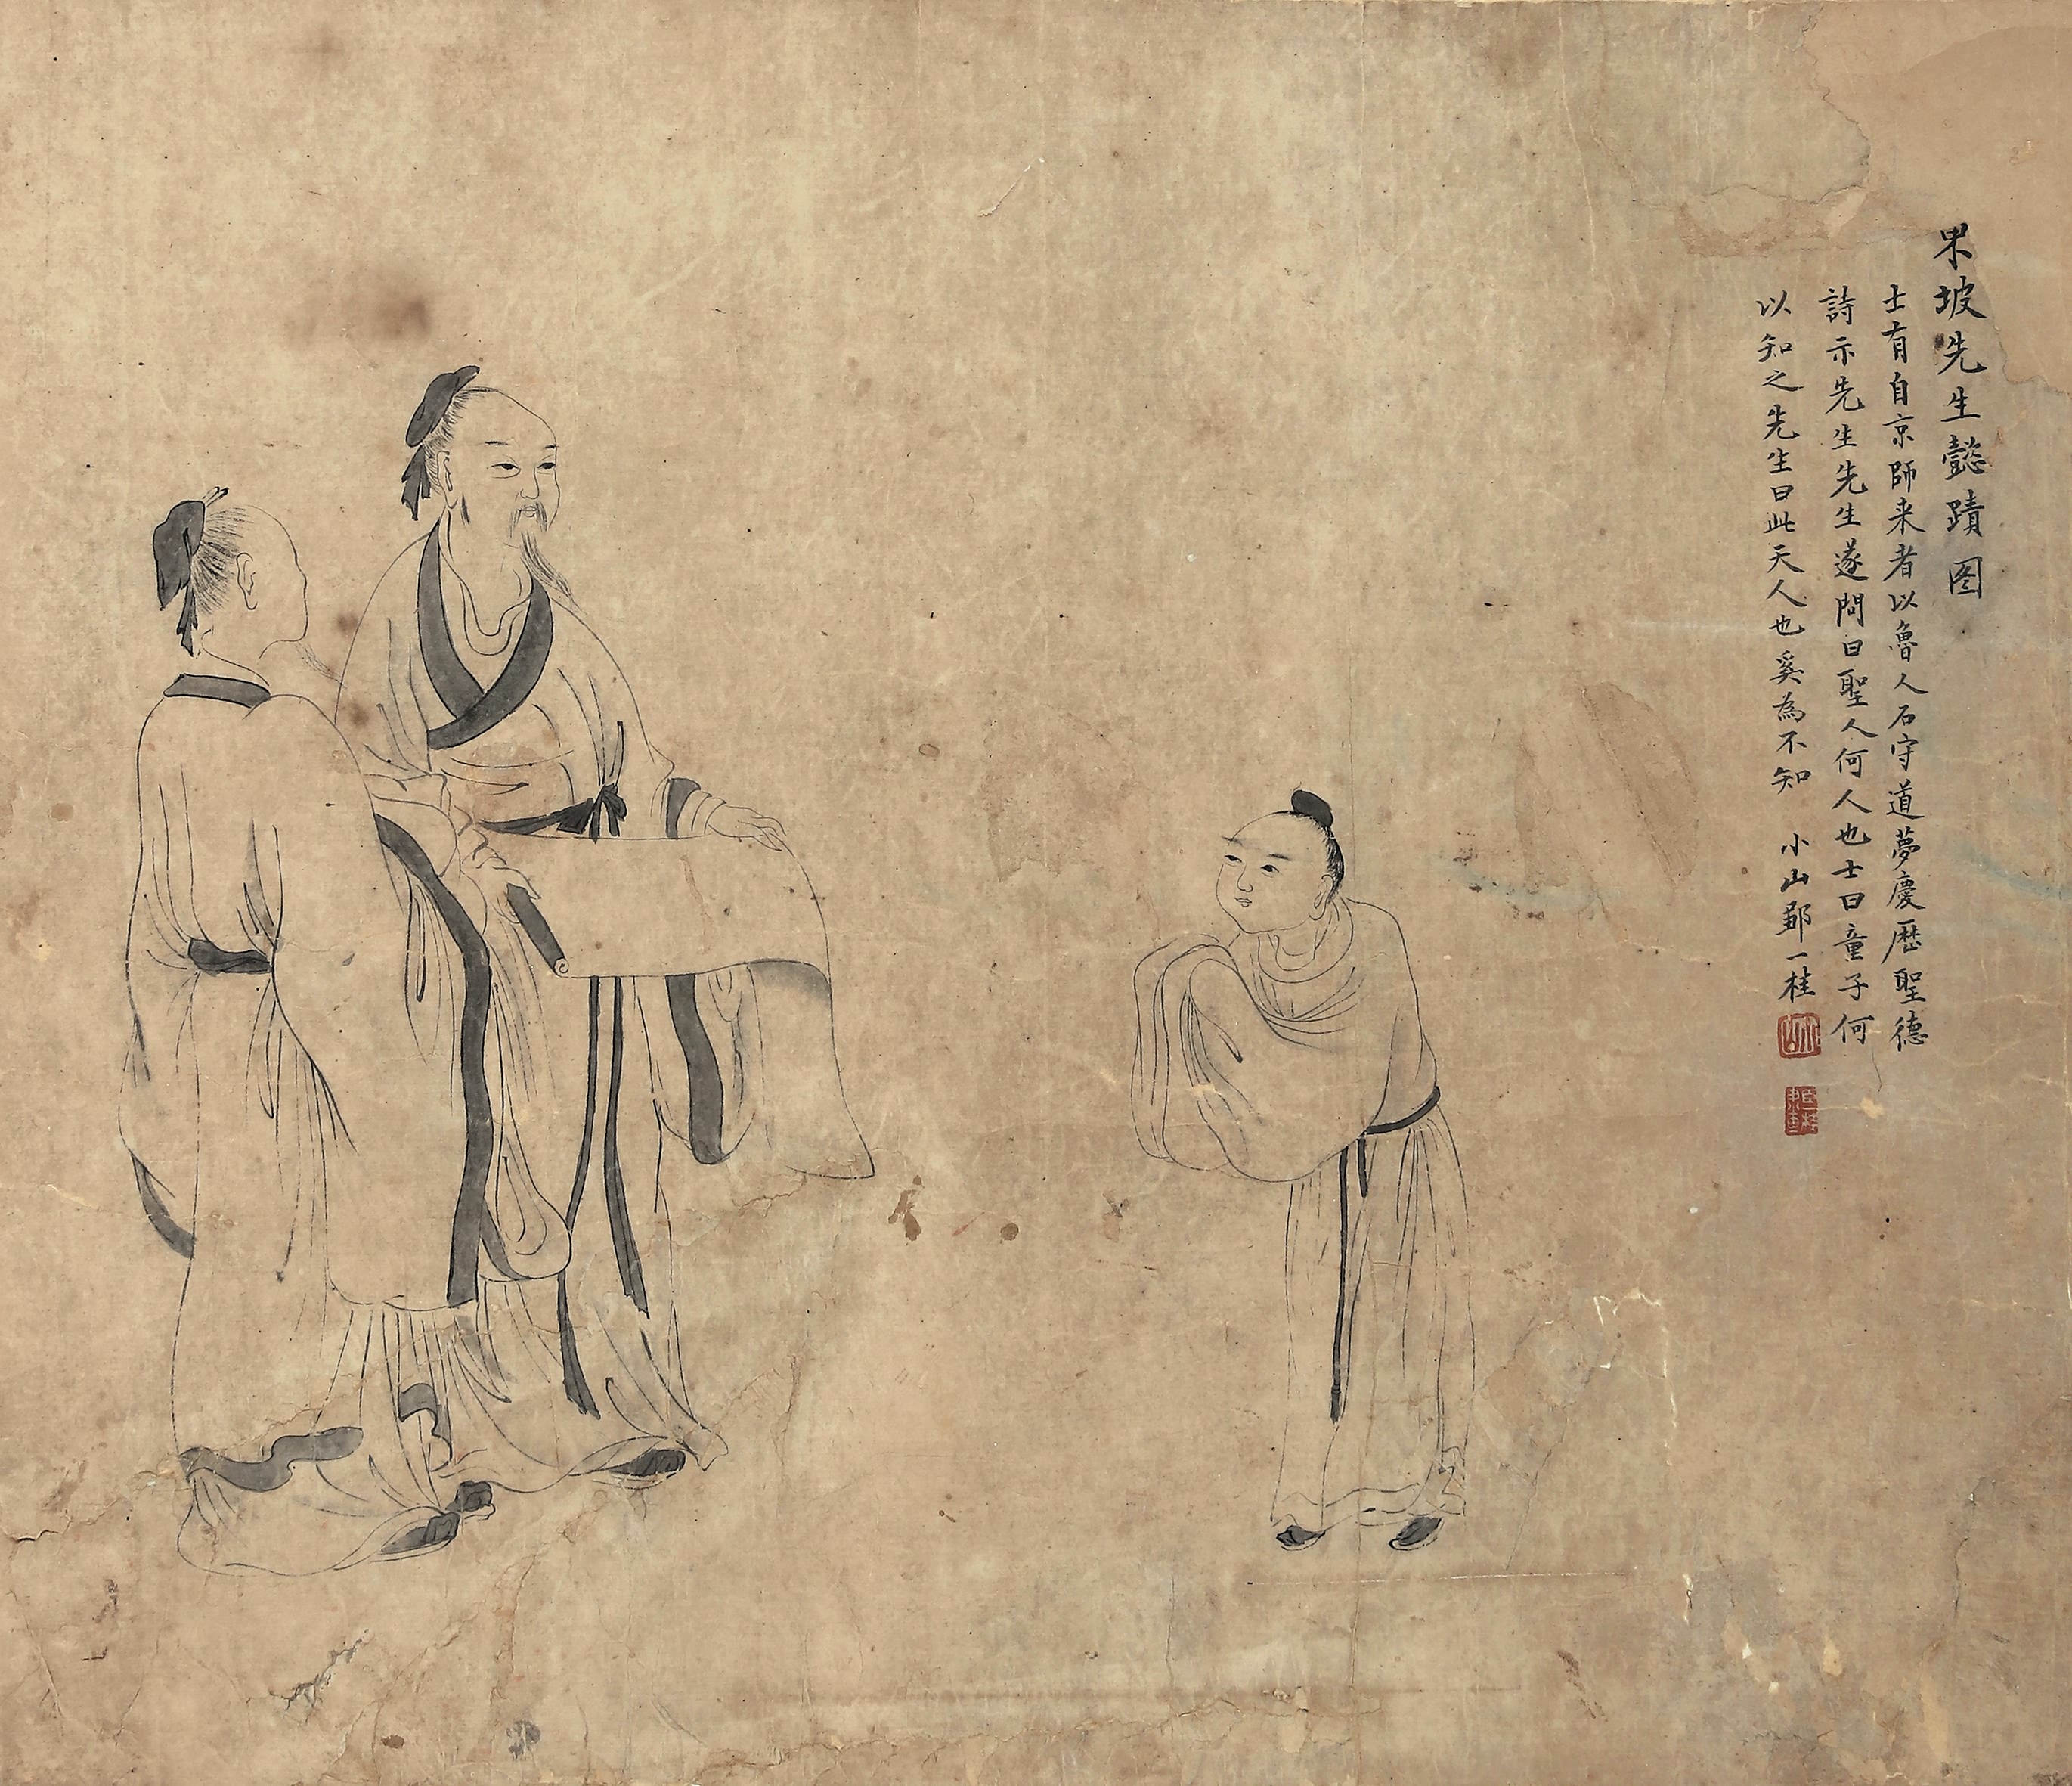 東坡先生懿蹟图
士有自京師来者以魯人石守道夢慶歷聖德
詩示先生先生遂問曰聖人何人也士曰童子何
以知之先生曰此天人也奚為不知 小山鄒一桂